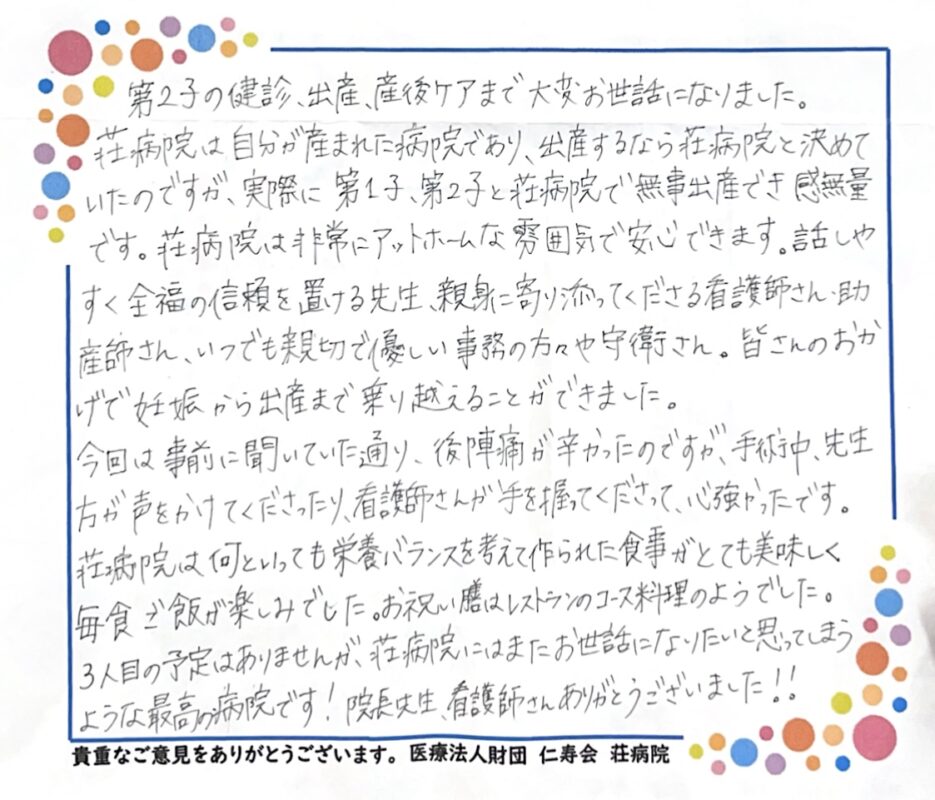 第2子の健診、出産、産後ケアまで大変お世話になりました。
荘病院は自分が産まれた病院であり、出産するなら荘病院と決めて
いたのですが、実際に第1子、第2子と荘病院で無事出産でき感無量
です。荘病院は非常にアットホームな雰囲気で安心できます。話しや
すく全福の信頼を置ける先生、親身に寄り添ってくださる看護師さん・助
産師さん、いつでも親切で優しい事務の方々や守衛さん。皆さんのおか
げで妊娠から出産まで乗り越えることができました。
今回は事前に聞いていた通り、後陣痛が辛かったのですが、手術中、先生
方が声をかけてくださったり、看護師さんが手を握ってくださって、心強かったです。
荘病院は何といっても栄養バランスを考えて作られた食事がとても美味しく
毎食ご飯が楽しみでした。お祝い膳はレストランのコース料理のようでした。
3人目の予定はありませんが、荘病院にはまたお世話になりたいと思ってしまう
ような最高の病院です！院長先生、看護師さんありがとうございました!!
貴重なご意見をありがとうございます。医療法人財団 仁寿会 荘病院